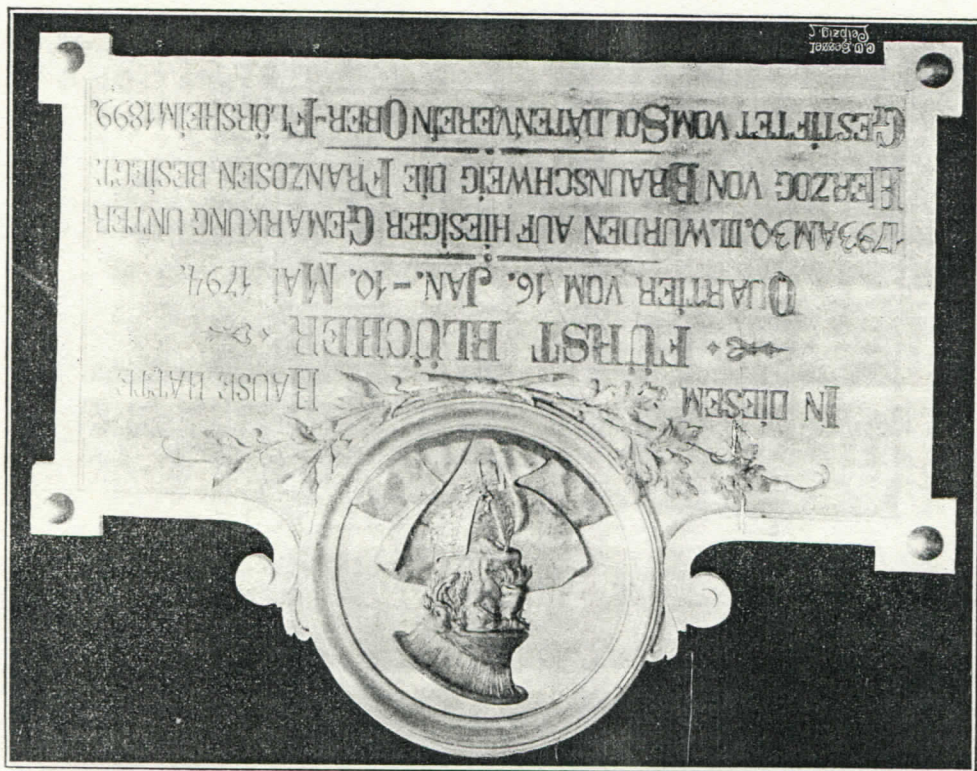 IN DIESEM HAUSE HATTE
FÜRST BLÜCHER
QUARTIER VOM 16. JAN. - 10. MAI 1794.
1793 AM 30. III. WURDEN AUF HIESIGER GEMARKUNG UNTER
HERZOG VON BRAUNSCHWEIG DIE FRANZOSEN BESIEGT.
GESTIFTET VOM SOLDATENVEREIN OBER-FLÖRSHEIM 1899.
Leipzig.